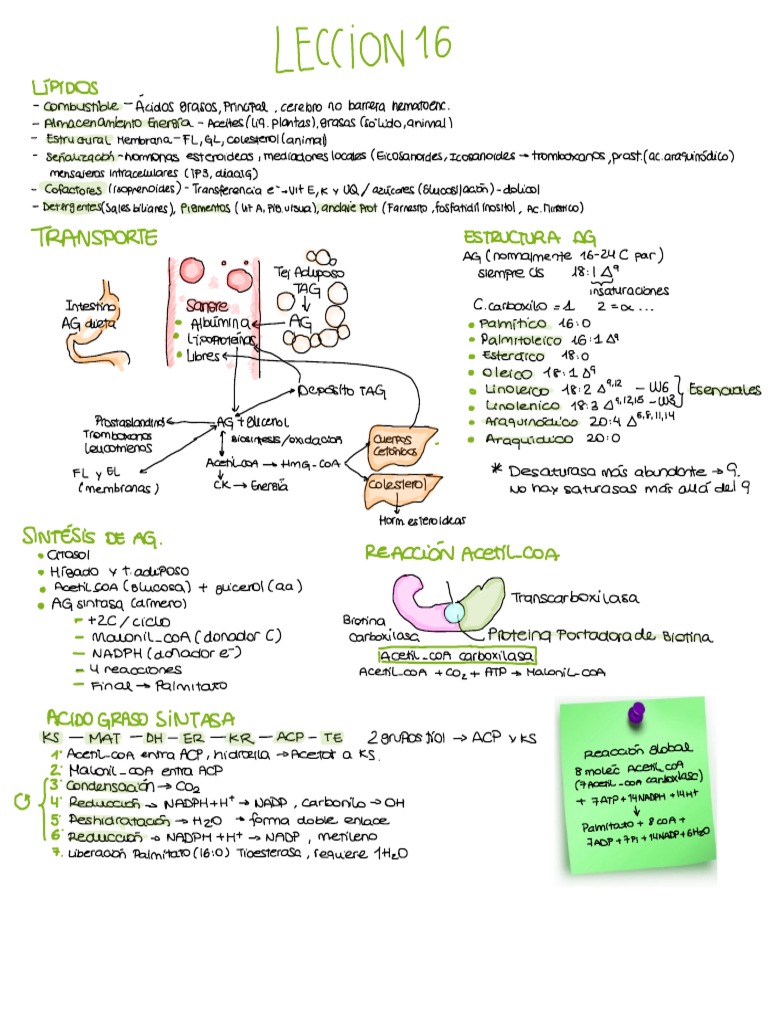 LECCION 16
LÍPIDOS
- Combustible - Ácidos grasos, Principal, cerebro no barrera hematoenc.
- Almacenamiento Energía - Aceites (liq. plantas), grasas (sólido, animal)
- Estructural Membrana - FL, GL, colesterol (animal)
- Señalización - hormonas esteroideas, mediadores locales (Eicosanoides, Icosanoides → tromboxanos, prost. (ac. araquinódico)
mensajeros intracelulares (IP3, diacilG)
- Cofactores (isoprenoides) - Transferencia e- → Vit E, K y UQ / azúcares (Glucosilación) - dolicol
- Detergentes (Sales biliares), Pigmentos (Vit A, Pig. visual), anclaje Prot (Farnesilo, fosfatidil inositol, Ac. Mirístico)
TRANSPORTE
Intestino
AG dieta
Sangre
• Albúmina
• Lipoproteínas
• Libres
Tej Adiposo
TAG
AG
Depósito TAG
AG + glicerol
Biosíntesis/oxidación
Acetil_CoA → HMG-COA
CK → Energía
Prostaglandinas
Tromboxanos
Leucotrienos
FL y EL
(membranas)
Cuerpos
Cetónicos
Colesterol
Horm esteroideas
ESTRUCTURA AG
AG (normalmente 16-24 C par)
siempre cis 18:1 Δ⁹
insaturaciones
C. carboxilo = 1 2 = α ...
• Palmítico 16:0
• Palmitoleico 16:1 Δ⁹
• Esteárico 18:0
• Oleico 18:1 Δ⁹
• Linoleico 18:2 Δ⁹,¹² - W6 } Esenciales
• Linolenico 18:3 Δ⁹,¹²,¹⁵ - W3
• Araquinódico 20:4 Δ⁵,⁸,¹¹,¹⁴
• Araquídico 20:0
* Desaturasa más abundante → 9.
No hay saturasas más allá del 9
SINTÉSIS DE AG.
• Citosol
• Hígado y t. adiposo
• Acetil_COA (glucosa) + glicerol (aa)
• AG sintasa (dímero)
- +2C / ciclo
- Malonil_COA (donador C)
- NADPH (donador e-)
- 4 reacciones
- Final → Palmitato
REACCIÓN ACETIL_COA
Transcarboxilasa
Biotina
carboxilasa
Proteina Portadora de Biotina
Acetil_COA carboxilasa
Acetil_COA + CO₂ + ATP → Malonil-COA
ACIDO GRASO SINTASA
KS - MAT - DH - ER - KR - ACP - TE 2 grupos tiol → ACP y KS
1· Acetil_COA entra ACP, hidrólisis → Acetol a KS.
2· Malonil_COA entra ACP
3· Condensación → CO₂
4· Reducción → NADPH + H⁺ → NADP, carbonilo → OH
5· Deshidratación → H₂O → forma doble enlace
6· Reducción → NADPH + H⁺ → NADP, metileno
7. Liberación Palmitato (16:0) Tioesterasa, requiere 1H₂O
Reacción Global
8 molec Acetil COA
(7 Acetil_COA carboxilasa)
+ 7ATP + 14NADPH + 14H+
↓
Palmitato + 8 COA +
7ADP + 7Pi + 14NADP + 6H₂O